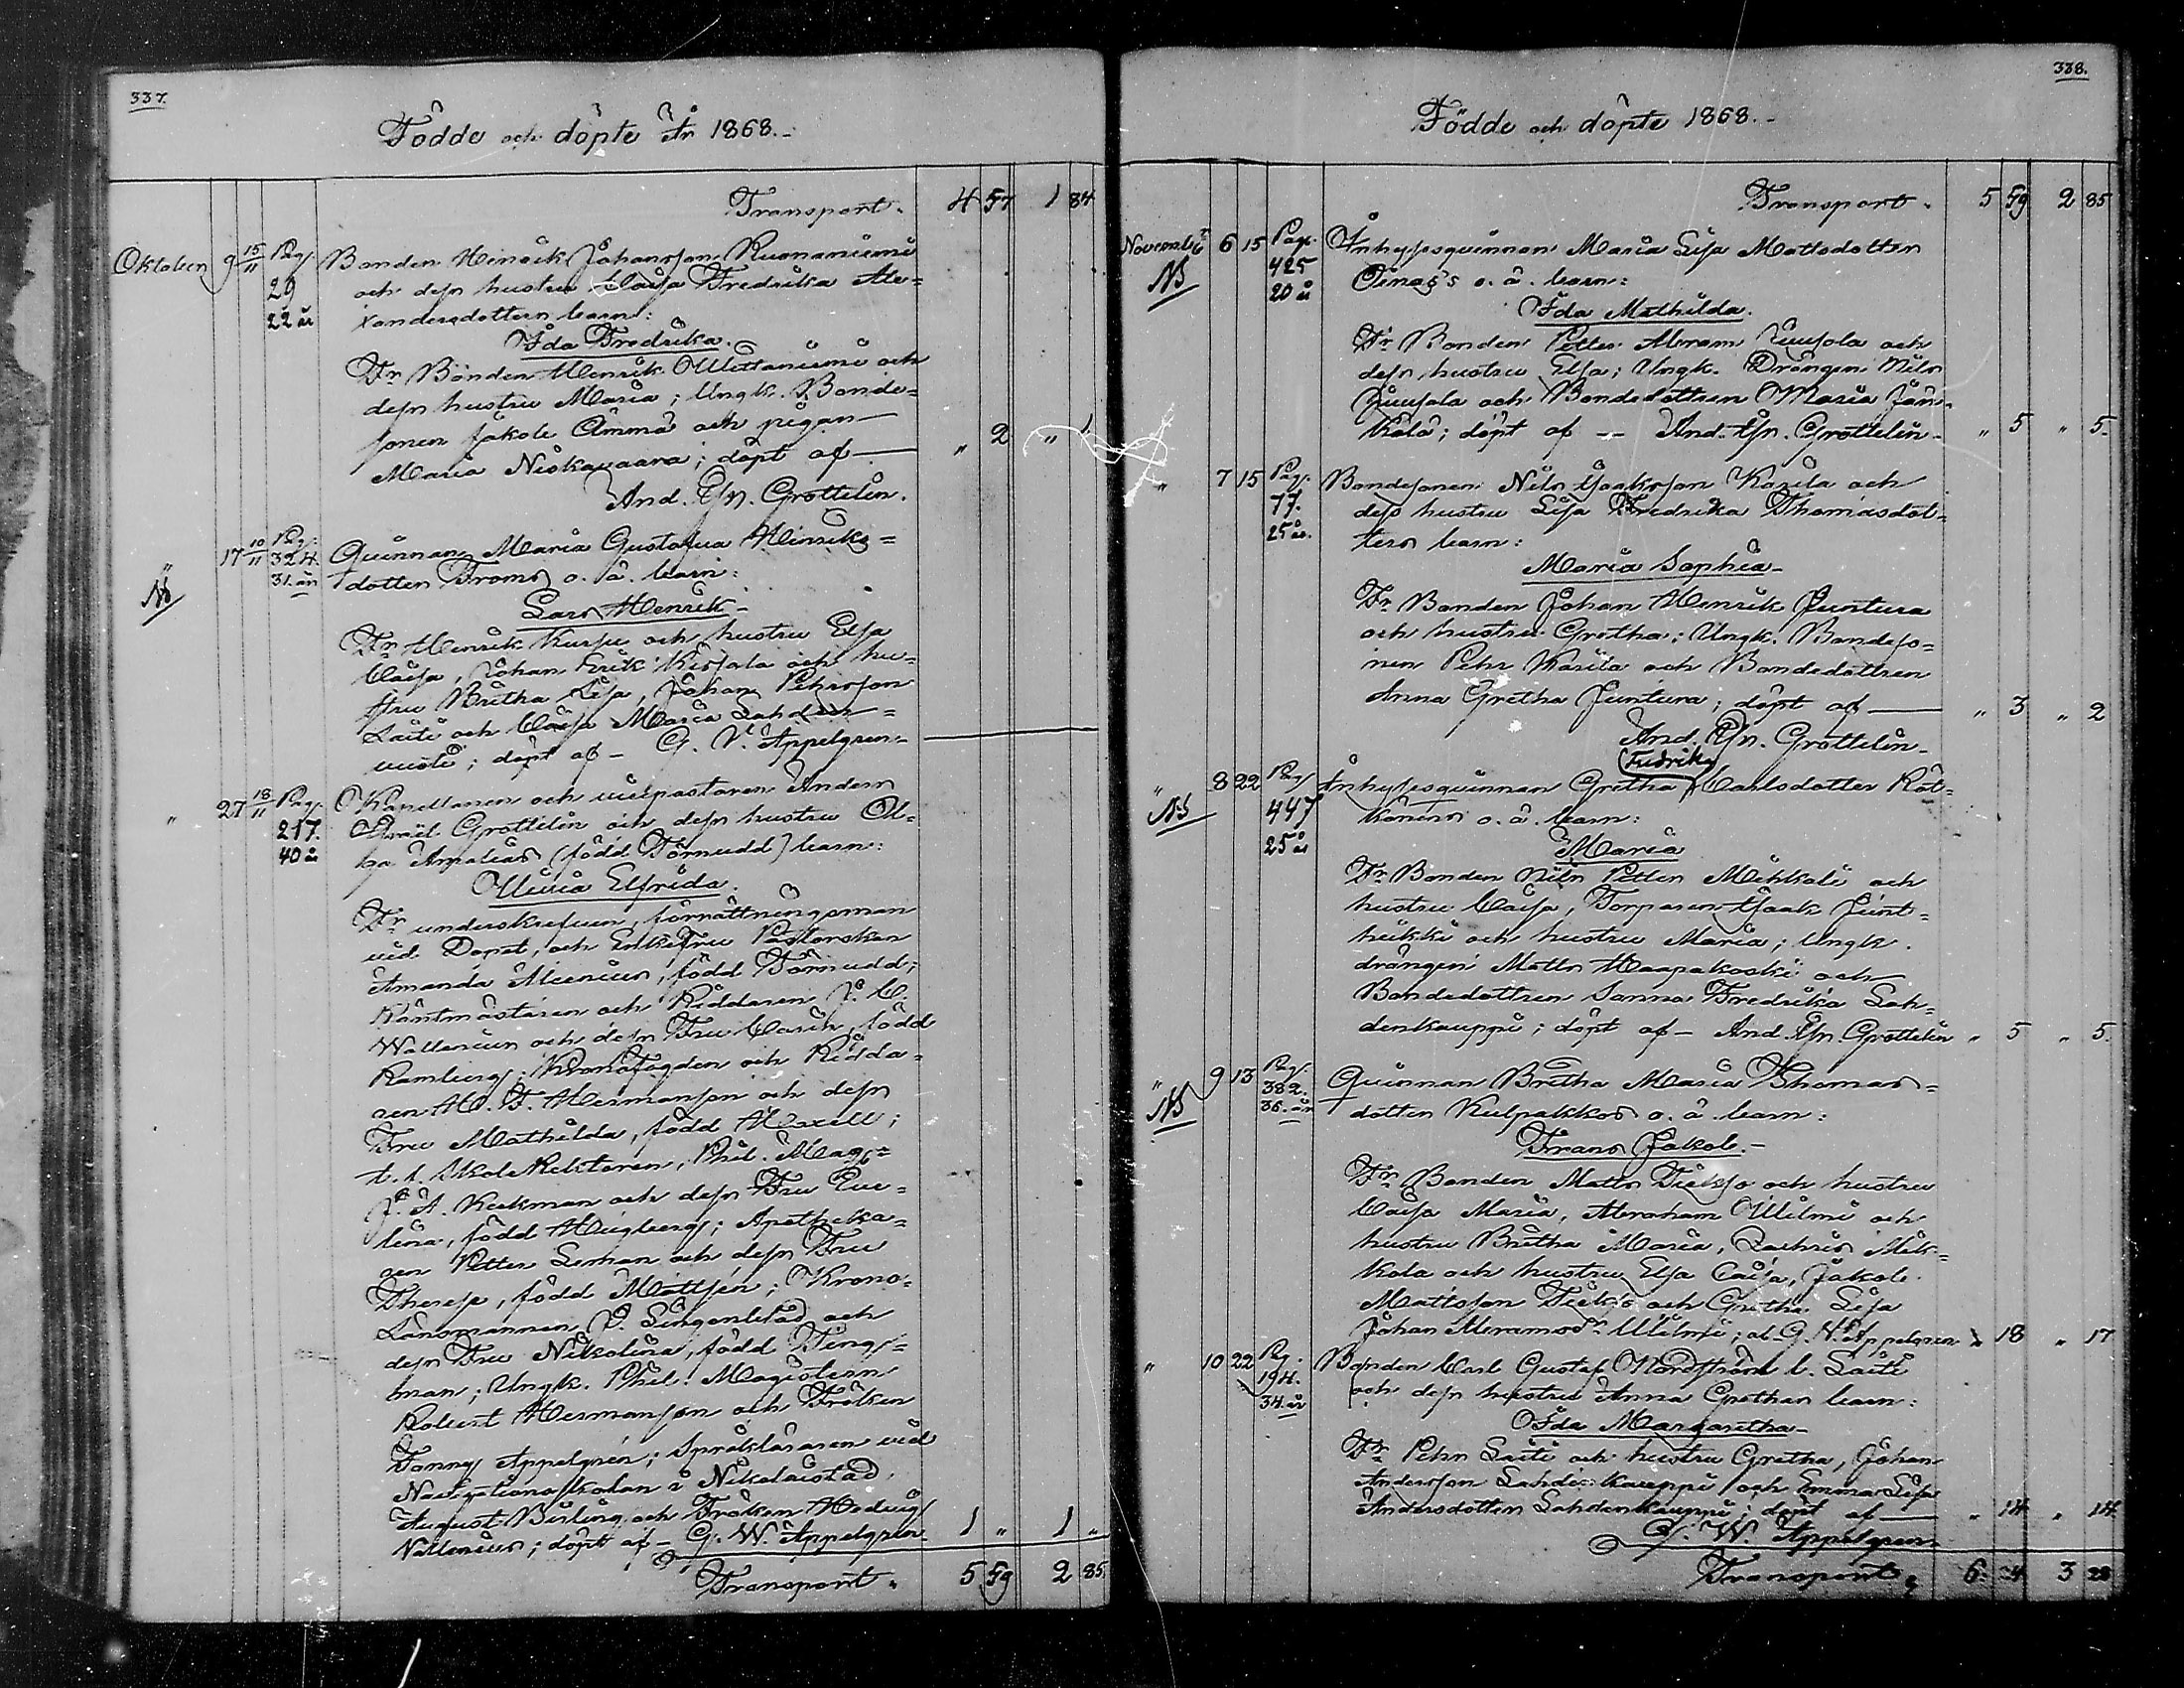 337.
Födde och döpte År 1868.
Transport. 4 57 1 84
Oktober 9 15/11 Pag. Bonden Henrik Johansson Ruonaniemi
29 och dess hustru Caisa Fredrika Ale-
22 år xandersdotters barn:
Ida Fredrika.
Fr. Bonden Henrik Wittaniemi och
dess hustru Maria; Ungk. Bonde-
sonen Jakob Ämmä och pigan
Maria Niskavaara; döpt af — " 2 " 1
And. Esr. Grottelin.
" 17 10/11 Pag. 324. Qvinnan Maria Gustafva Henriks-
NB 31. år dotter Froms o. ä. barn:
Lars Henrik
Fr. Henrik Kurju och hustru Elsa
Caisa, Johan Erik Kissala och hu-
stru Britha Lisa, Johan Pehrsson
Laiti och Caisa Maria Lahden-
; döpt af — G. W. Appelgren
" 27 18/11 Pag. Kapellanen och vicepastoren Anders
217. Esraël Grottelin och dess hustru Ol-
40 år ga Amalias (född Törnudd) barn:
Elfrida.
Fr. underskrefven, förrättningsman
vid Dopet, och Enkefru Pastorskan
Amanda Alcenius, född Törnudd;
Räntmästaren och Riddaren J. C.
Wallenius och dess Fru Carin, född
Ramberg; Kronofogden och Ridda-
ren H. F. Hermanson och dess
Fru Mathilda, född ;
t. f. Skole Rektoren, Phil. Mag.
J. A. Keckman och dess Fru Eve-
lina, född Heigberg; Apotheka-
ren Petter och dess Fru
Therese, född ; Krono-
Länsmannen J. Lingenblad och
dess Fru Nikolina, född Teng-
man; Ungk. Phil. Magistern
Robert Hermanson och Fröken
Fanny Appelgren; Språkläraren vid
Navigationsskolan i Nikolaistad,
August och Fröken Hedvig
Wallenius; döpt af — G. W. Appelgren 1 " 1 "
Transport. 5 59 2 85.
338.
Födde och döpte 1868.
Transport. 5 59 2 85
November 6 15 Pag. Inhysesqvinnan Maria Lisa Matsdotter
NB 425 Oinas's o. ä. barn:
20 år
Ida Mathilda.
Fr. Bonden Petter Abram Juusola och
dess hustru Elsa; Ungk. Drängen Nils
Juusola och Bondedottren Maria Jän-
kälä; döpt af — And. Esr. Grottelin. " 5 " 5.
" 7 15 Pag. Bondesonen Nils Isaksson Karila och
77. dess hustru Lisa Fredrika Thomasdot-
25 år. ters barn:
Maria Sophia
Fr. Bonden Johan Henrik Juntura
och hustru Gretha; Ungk. Bondeso-
nen Pehr Karila och Bondedottren
Anna Gretha Juntura; döpt af — " 3 " 2
And. Esr. Grottelin.
Fredrika
" 8 22 Pag. Inhysesqvinnan Gretha Carlsdotter Röt-
NB 447 könens o. ä. barn:
25 år
Maria
Fr. Bonden Nils Petter Mikkeli och
hustru Caisa, Torparen Isaak Junt-
heikki och hustru Maria; Ungk.
drängen Matts Haapakoski och
Bondedottren Sanna Fredrika Lah-
denkauppi; döpt af — And. Esr. Grottelin " 5 " 5.
" 9 13 Pag. 382. Qvinnan Britha Maria Thomas-
NB 36. år dotter Kulpakkos o. ä. barn:
Frans Jakob.
Fr. Bonden Matts Tiekso och hustru
Caisa Maria, Abraham Ulilmi och
hustru Britha Maria, Zachris Mik-
kola och hustru Elsa Caisa, Jakob
Mattsson Tiekso och Gretha Lisa
Johan Abramsdr Ulilmi; af G. W. Appelgren " 18 " 17
" 10 22 Pag. Bonden Carl Gustaf Nordström l. Laiti
194. och dess hustru Anna Grethas barn:
34. år
Ida Margaretha
Fr. Pehr Laiti och hustru Gretha, Johan
Andersson Lahdenkauppi och Emma Lisa
Andersdotter Lahdenkauppi; döpt af — " 14 " 14
G. W. Appelgren
Transport 6 3 28